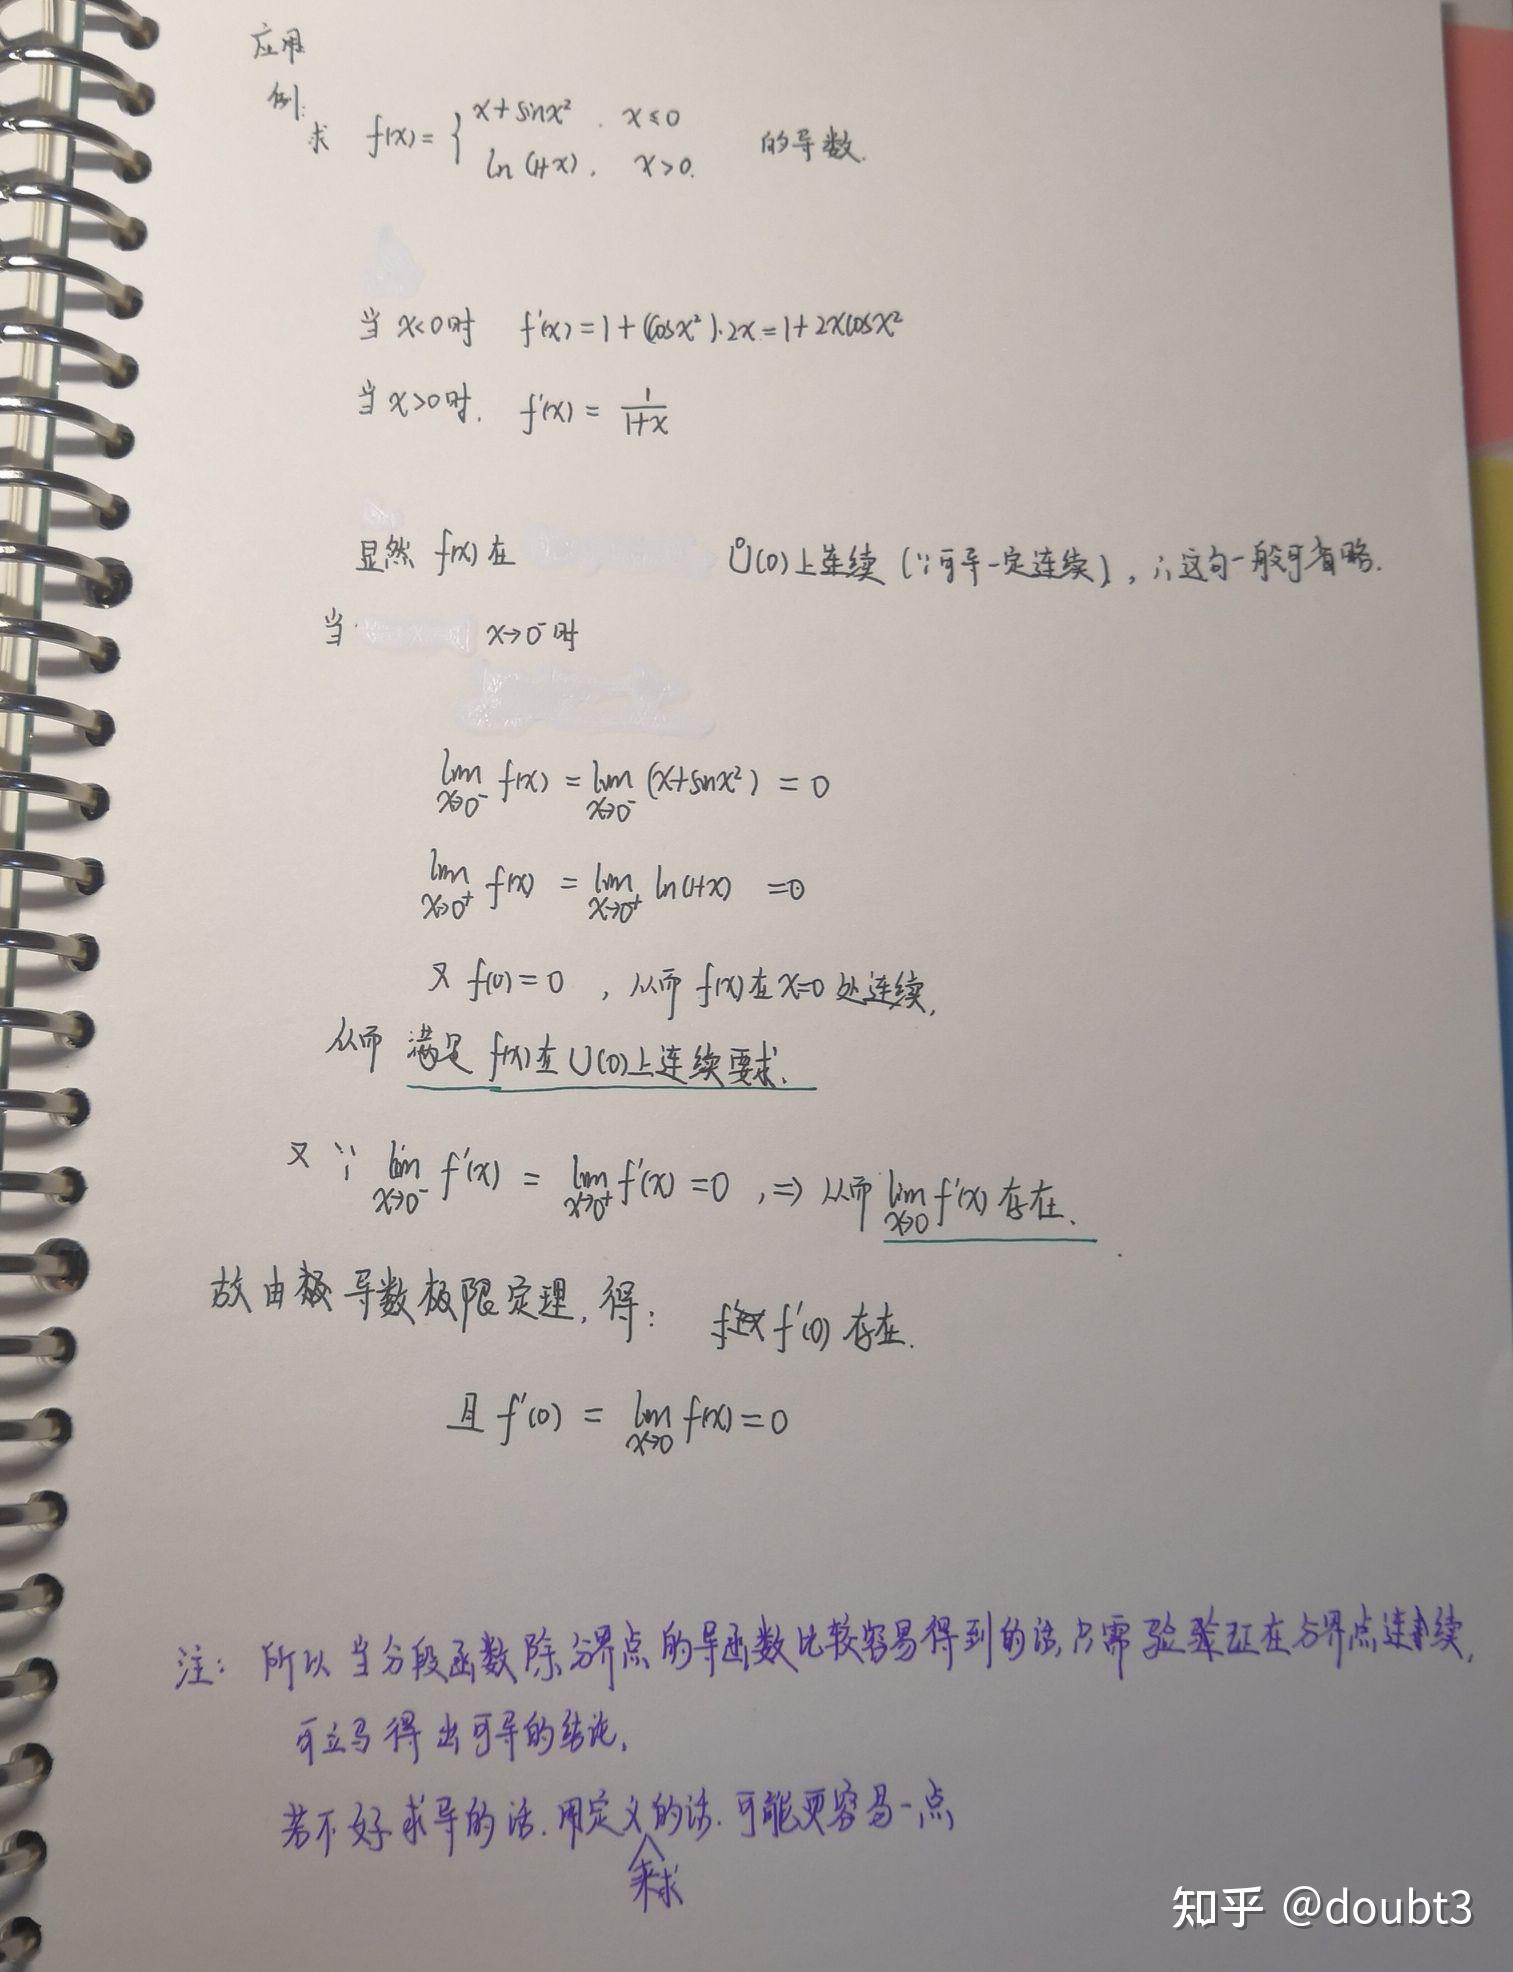 应用
例:
求 f(x)={ x+sinx², x≤0
ln(1+x), x>0. 的导数.
当 x<0时 f'(x)=1+(cosx²)·2x=1+2xcosx²
当 x>0时. f'(x)= 1/(1+x)
显然 f(x)在 Ů(0)上连续(∵可导一定连续),∴这句一般可省略.
当 x→0⁻时
lim x→0⁻ f(x) = lim x→0⁻ (x+sinx²) = 0
lim x→0⁺ f(x) = lim x→0⁺ ln(1+x) =0
又 f(0)=0 ,从而 f(x)在x=0处连续,
从而 满足 f(x)在U(0)上连续要求.
又∵ lim x→0⁻ f'(x) = lim x→0⁺ f'(x) =0 ,⇒ 从而 lim x→0 f'(x) 存在.
故由导数极限定理,得: f'(0) 存在.
且 f'(0) = lim x→0 f(x)=0
注: 所以当分段函数除分界点的导函数比较容易得到的话,只需验证在分界点连续,
可立马得出可导的结论,
若不好求导的话.用定义来求的话.可能更容易一点
知乎 @doubt3